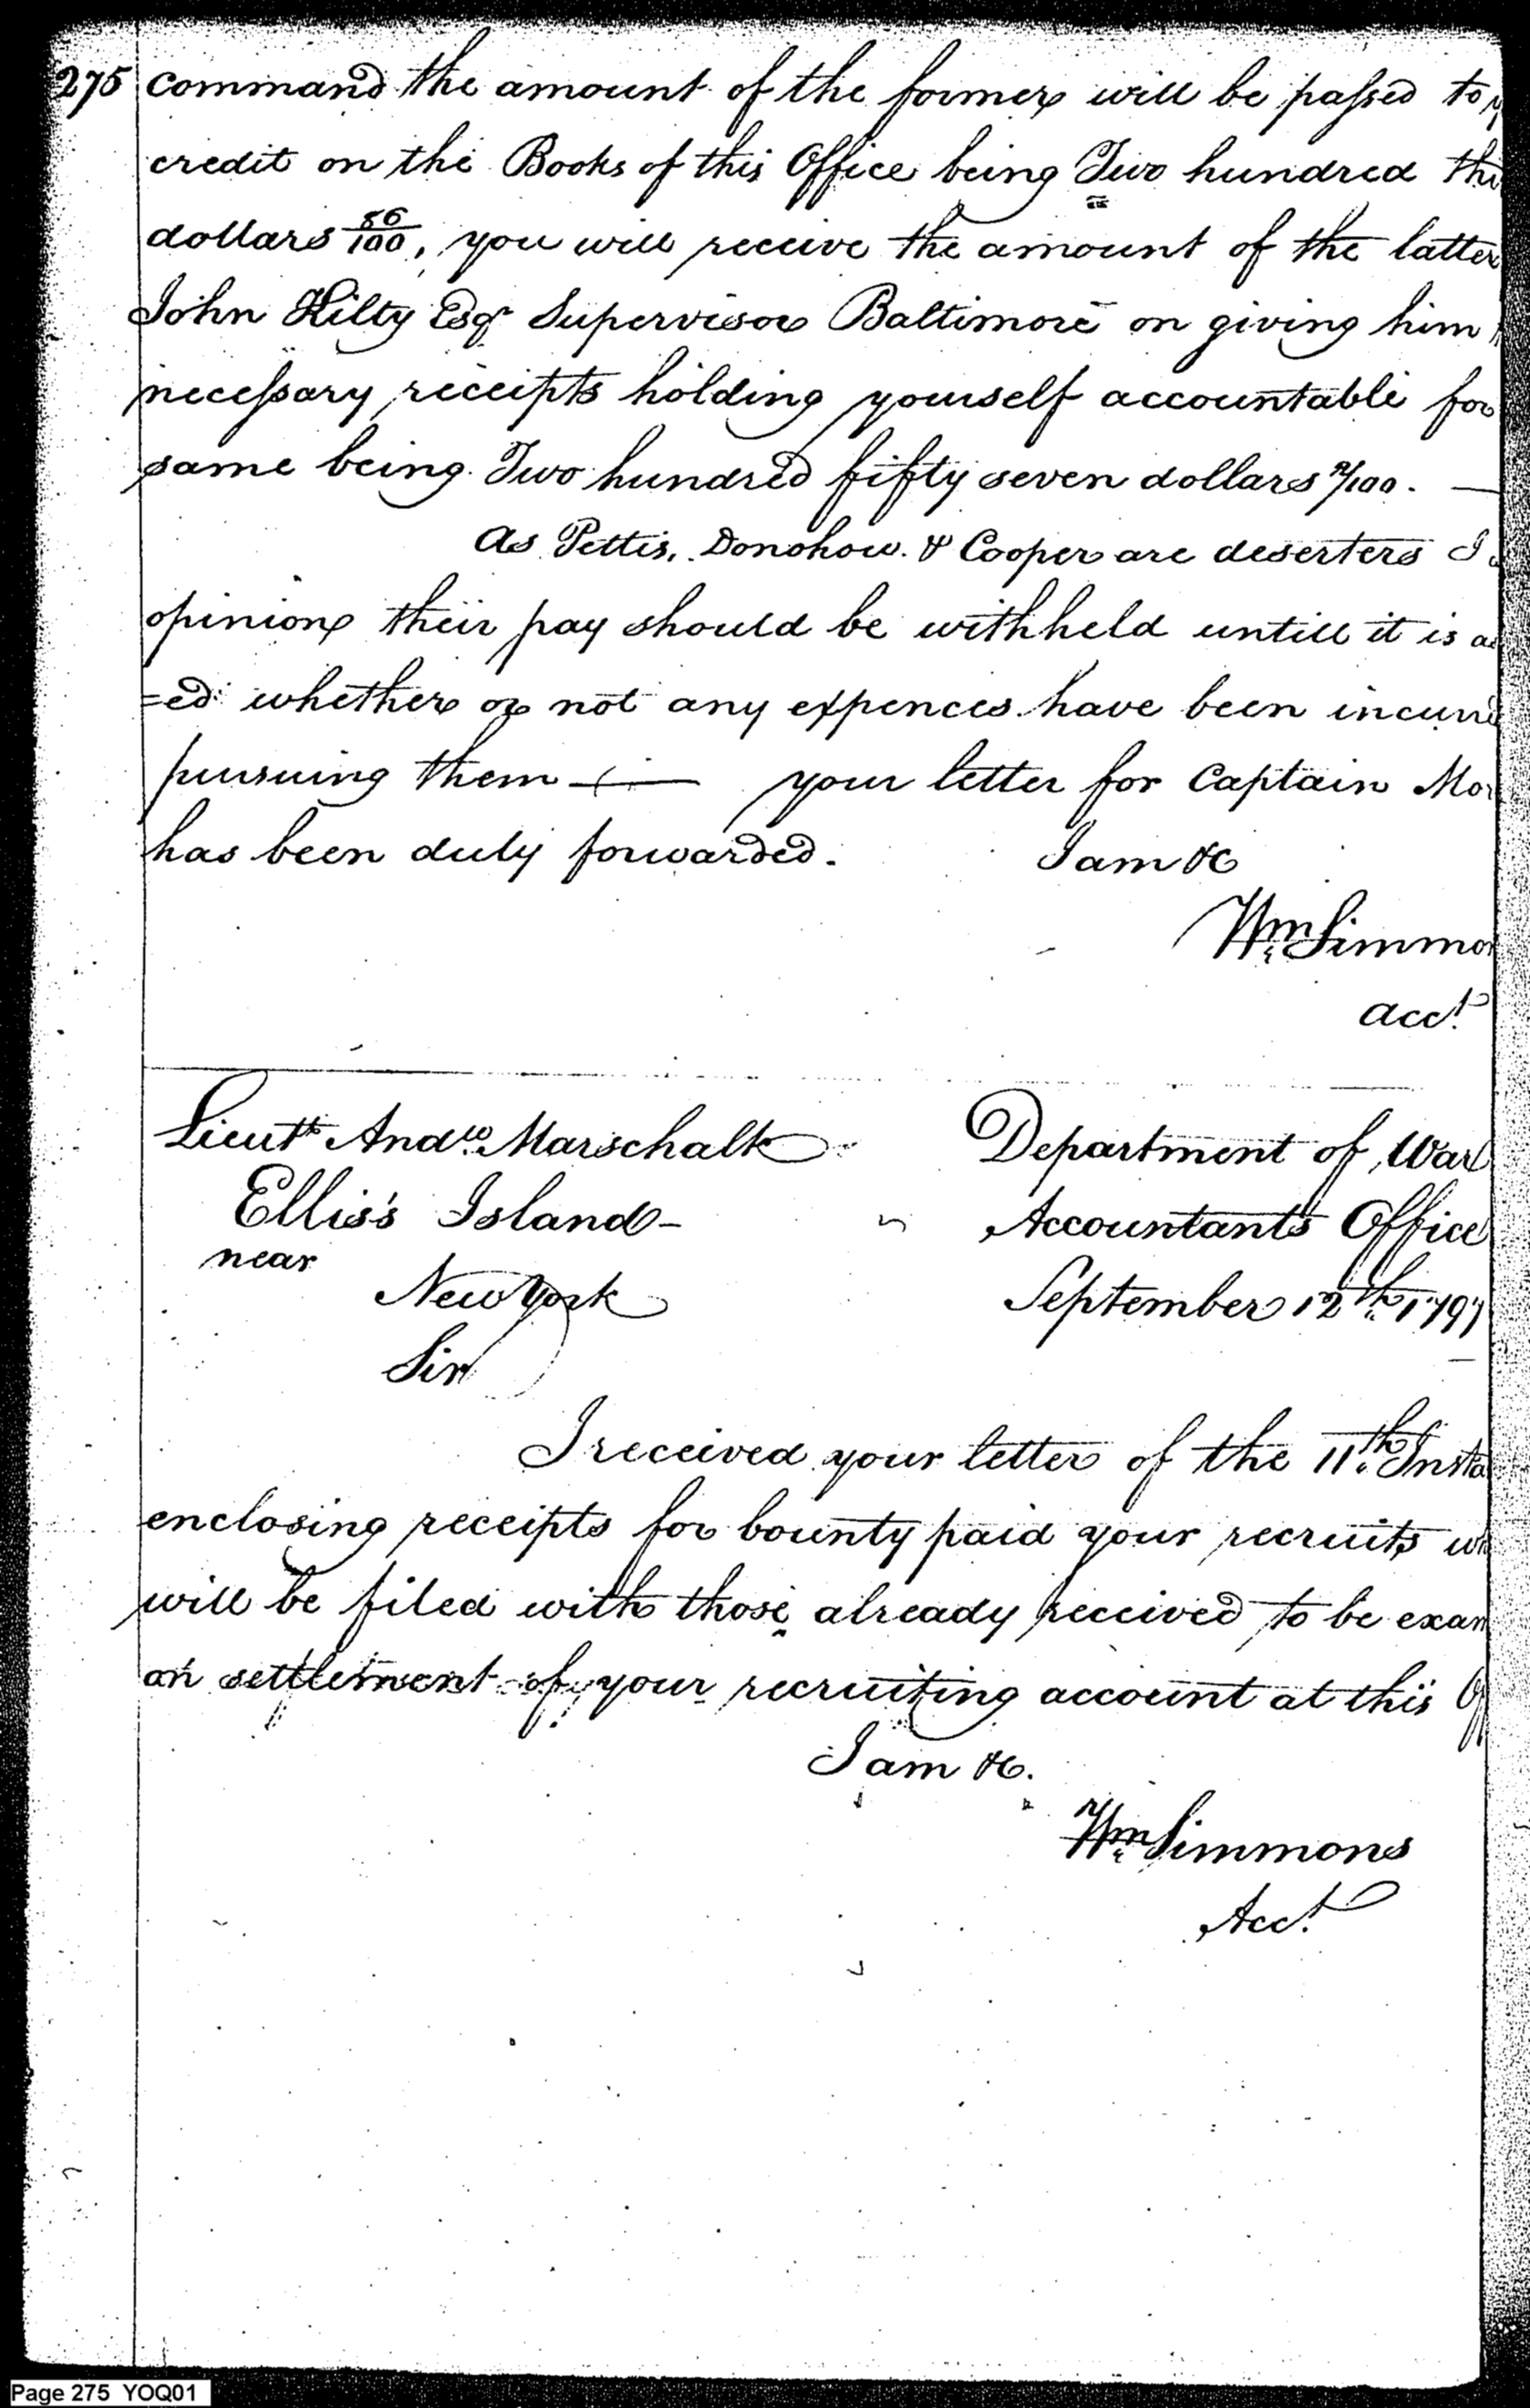 275 command the amount of the former will be passed to
credit on the Books of this Office being Two hundred
dollars 86/100, you will receive the amount of the latter
John Kilty Esqr Supervisor Baltimore on giving him
necessary receipts holding yourself accountable for
same being Two hundred fifty seven dollars /100. —
As Pettis, Donohow. & Cooper are deserters I
opinion their pay should be withheld untill it is
=ed whether or not any expences have been incurre
pursuing them — your letter for Captain
has been duly forwarded. I am &c
Wm Simmo
acct
Lieutt Andw Marschalk Department of War
Ellis's Island — Accountants Office
near
New York September 12th 1797
Sir
I received your letter of the 11th Insta
enclosing receipts for bounty paid your recruits wh
will be filed with those already received to be exam
on settlement of your recruiting account at this Of
I am &c.
Wm Simmons
Acct
Page 275 YOQ01